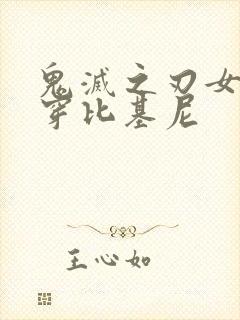 鬼滅之刃女
穿比基尼
王心如